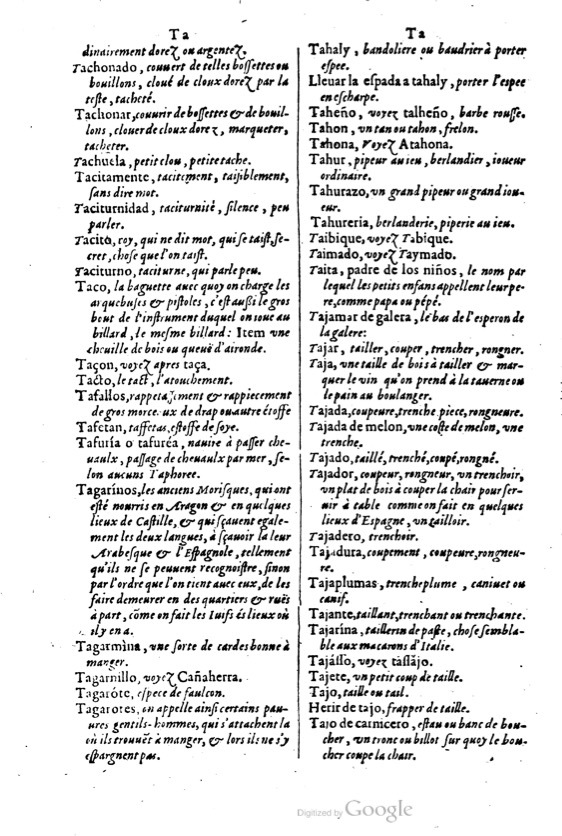 Ta
dinairement dorez ou argentez.
Tachonado, couvert de telles bossettes ou
bouillons, cloué de cloux dorez par la
teste, tacheté.
Tachonar, couurir de bossettes & de bouil-
lons, clouer de cloux dorez, marqueter,
tacheter.
Tachuela, petit clou, petite tache.
Tacitamente, tacitement, taisiblement,
sans dire mot.
Taciturnidad, taciturnité, silence, peu
parler.
Tacito, coy, qui ne dit mot, qui se taist, se-
cret, chose que l'on taist.
Taciturno, taciturne, qui parle peu.
Taco, la baguette auec quoy on charge les
arquebuses & pistoles, c'est außi le gros
bout de l'instrument duquel on ioue au
billard, le mesme billard: Item vne
cheuille de bois ou queuë d'aironde.
Taçon, voyez apres taça.
Tacto, le tact, l'atouchement.
Tafallos, rappetassement & rappiecement
de gros morceaux de drap ou autre étoffe
Tafetan, taffetas, estoffe de soye.
Tafuría o tafuréa, nauire à passer che-
uaulx, passage de cheuaulx par mer, se-
lon aucuns Taphoree.
Tagarinos, les anciens Morisques, qui ont
esté nourris en Aragon & en quelques
lieux de Castille, & qui sçauent egale-
ment les deux langues, à sçauoir la leur
Arabesque & l'Espagnole, tellement
qu'ils ne se peuuent recognoistre, sinon
par l'ordre que l'on tient auec eux, de les
faire demeurer en des quartiers & ruës
à part, cōme on fait les Iuifs és lieux où
il y en a.
Tagarmina, vne sorte de cardes bonne à
manger.
Tagarnillo, voyez Cañaherra.
Tagaróte, espece de faulcon.
Tagarotes, on appelle ainsi certains pau-
ures gentils-hommes, qui s'attachent la
où ils trouuēt à manger, & lors ils ne s'y
espargnent pas.
Ta
Tahaly, bandoliere ou baudrier à porter
espee.
Lleuar la espada a tahaly, porter l'espee
en escharpe.
Taheño, voyez talheño, barbe rousse.
Tahon, vn tan ou tahon, frelon.
Tahona, Voyez Atahona.
Tahur, pipeur au ieu, berlandier, ioueur
ordinaire.
Tahurazo, vn grand pipeur ou grand iou-
eur.
Tahureria, berlanderie, piperie au ieu.
Taibique, voyez Tabique.
Taimado, voyez Taymado.
Taita, padre de los niños, le nom par
lequel les petits enfans appellent leur pe-
re, comme papa ou pépé.
Tajamar de galera, le bas de l'esperon de
la galere:
Tajar, tailler, couper, trencher, rongner.
Taja, vne taille de bois à tailler & mar-
quer le vin qu'on prend à la tauerne ou
le pain au boulanger.
Tajada, coupeure, trenche, piece, rongneure.
Tajada de melon, vne coste de melon, vne
trenche.
Tajado, taillé, trenché, coupé, rongné.
Tajador, coupeur, rongneur, vn trenchoir,
vn plat de bois à couper la chair pour ser-
uir à table comme on fait en quelques
lieux d'Espagne, vn tailloir.
Tajadero, trenchoir.
Tajadura, coupement, coupeure, rongneu-
re.
Tajaplumas, trencheplume, caniuet ou
canif.
Tajante, taillant, trenchant ou trenchante.
Tajarina, taillerin de paste, chose sembla-
ble aux macarons d'Italie.
Tajásso, voyez tassajo.
Tajete, vn petit coup de taille.
Tajo, taille ou tail.
Herir de tajo, frapper de taille.
Tajo de carnicero, estau ou banc de bou-
cher, vn tronc ou billot sur quoy le bou-
cher coupe la chair.
Digitized by Google